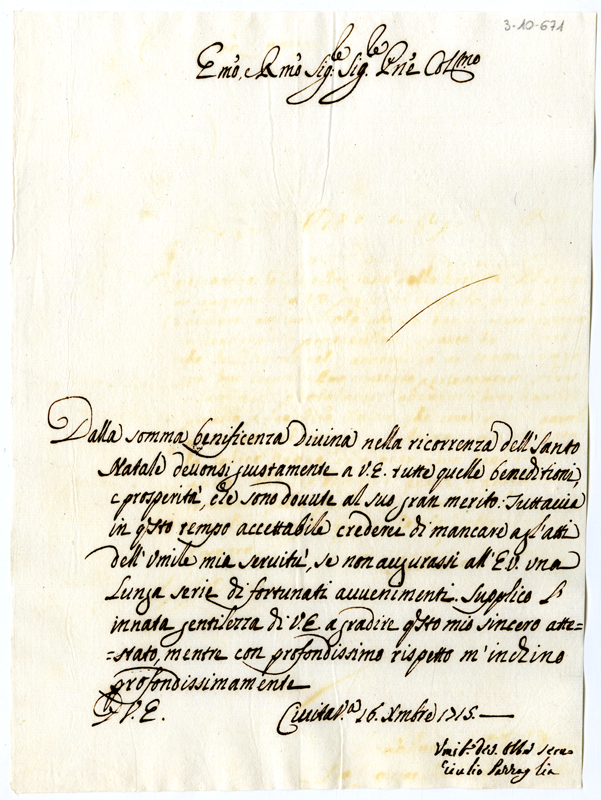 3-10-671
Emo, e Rmo Sig:re Sig:re Prne Colmo
Dalla somma benificenza Diuina nella ricorrenza dell' Santo
Natale deuonsi justamente a V.E. tutte quelle beneditioni,
e prosperità, che sono douute al suo gran merito: Tuttauia
in qsto tempo accettabile crederei di mancare agl'atti
dell' vmile mia seruitù, se non augurassi all' E.V. vna
Lunga serie di fortunati auuenimenti. Supplico l'
innata gentilezza di V.E. a gradire qsto mio sincero atte=
=stato, mentre con profondissimo rispetto m' inchino
profondissimamente
D V.E. Ciuitav.a 16. Xmbre 1715.
Vmil.o deu. Obbo seruo
Giulio